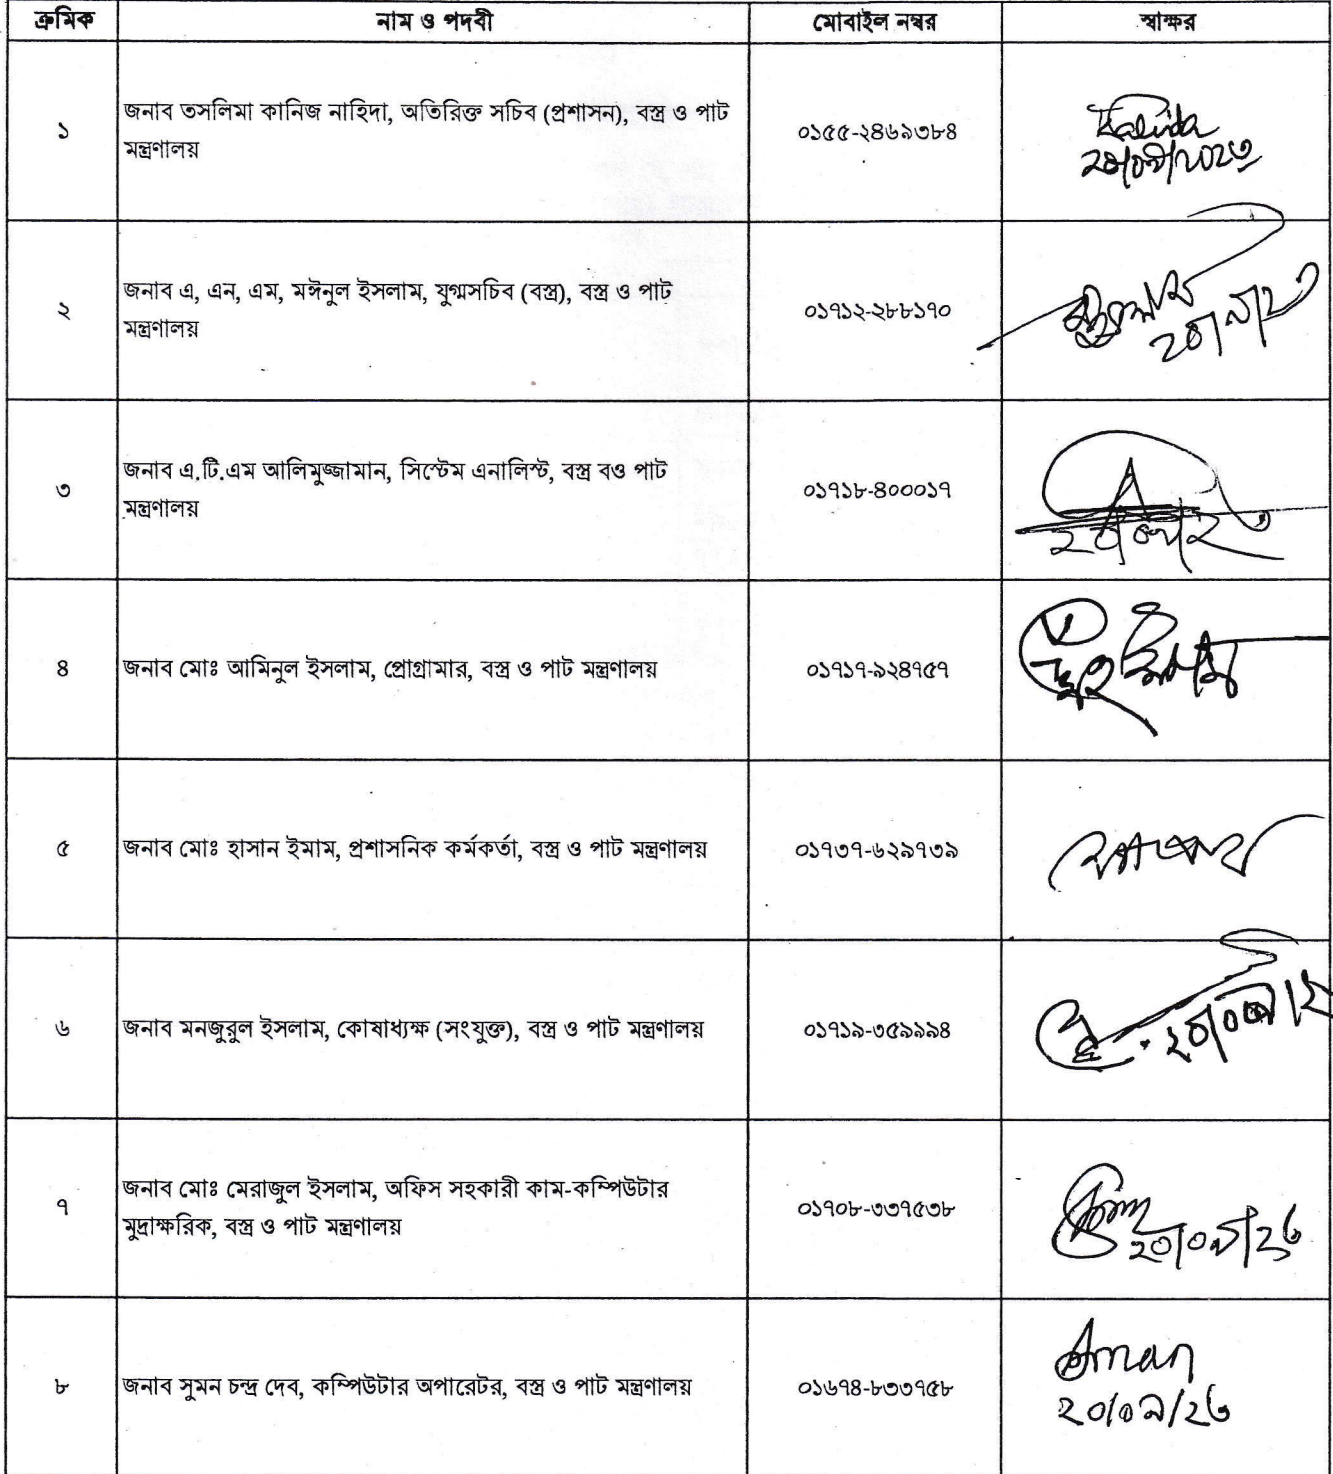 ক্রমিক নাম ও পদবী মোবাইল নম্বর স্বাক্ষর
১ জনাব তসলিমা কানিজ নাহিদা, অতিরিক্ত সচিব (প্রশাসন), বস্ত্র ও পাট ০১৫৫-২৪৬৯৩৮৪
মন্ত্রণালয়
২ জনাব এ, এন, এম, মঈনুল ইসলাম, যুগ্মসচিব (বস্ত্র), বস্ত্র ও পাট ০১৭১২-২৮৮১৭০
মন্ত্রণালয়
৩ জনাব এ.টি.এম আলিমুজ্জামান, সিস্টেম এনালিস্ট, বস্ত্র বও পাট ০১৭১৮-৪০০০১৭
মন্ত্রণালয়
৪ জনাব মোঃ আমিনুল ইসলাম, প্রোগ্রামার, বস্ত্র ও পাট মন্ত্রণালয় ০১৭১৭-৯২৪৭৫৭
৫ জনাব মোঃ হাসান ইমাম, প্রশাসনিক কর্মকর্তা, বস্ত্র ও পাট মন্ত্রণালয় ০১৭৩৭-৬২৯৭৩৯
৬ জনাব মনজুরুল ইসলাম, কোষাধ্যক্ষ (সংযুক্ত), বস্ত্র ও পাট মন্ত্রণালয় ০১৭১৯-৩৫৯৯৯৪
৭ জনাব মোঃ মেরাজুল ইসলাম, অফিস সহকারী কাম-কম্পিউটার ০১৭০৮-৩৩৭৫৩৮
মুদ্রাক্ষরিক, বস্ত্র ও পাট মন্ত্রণালয়
২০/০৯/২৩
৮ জনাব সুমন চন্দ্র দেব, কম্পিউটার অপারেটর, বস্ত্র ও পাট মন্ত্রণালয় ০১৬৭৪-৮৩৩৭৫৮
২০/০৯/২৩